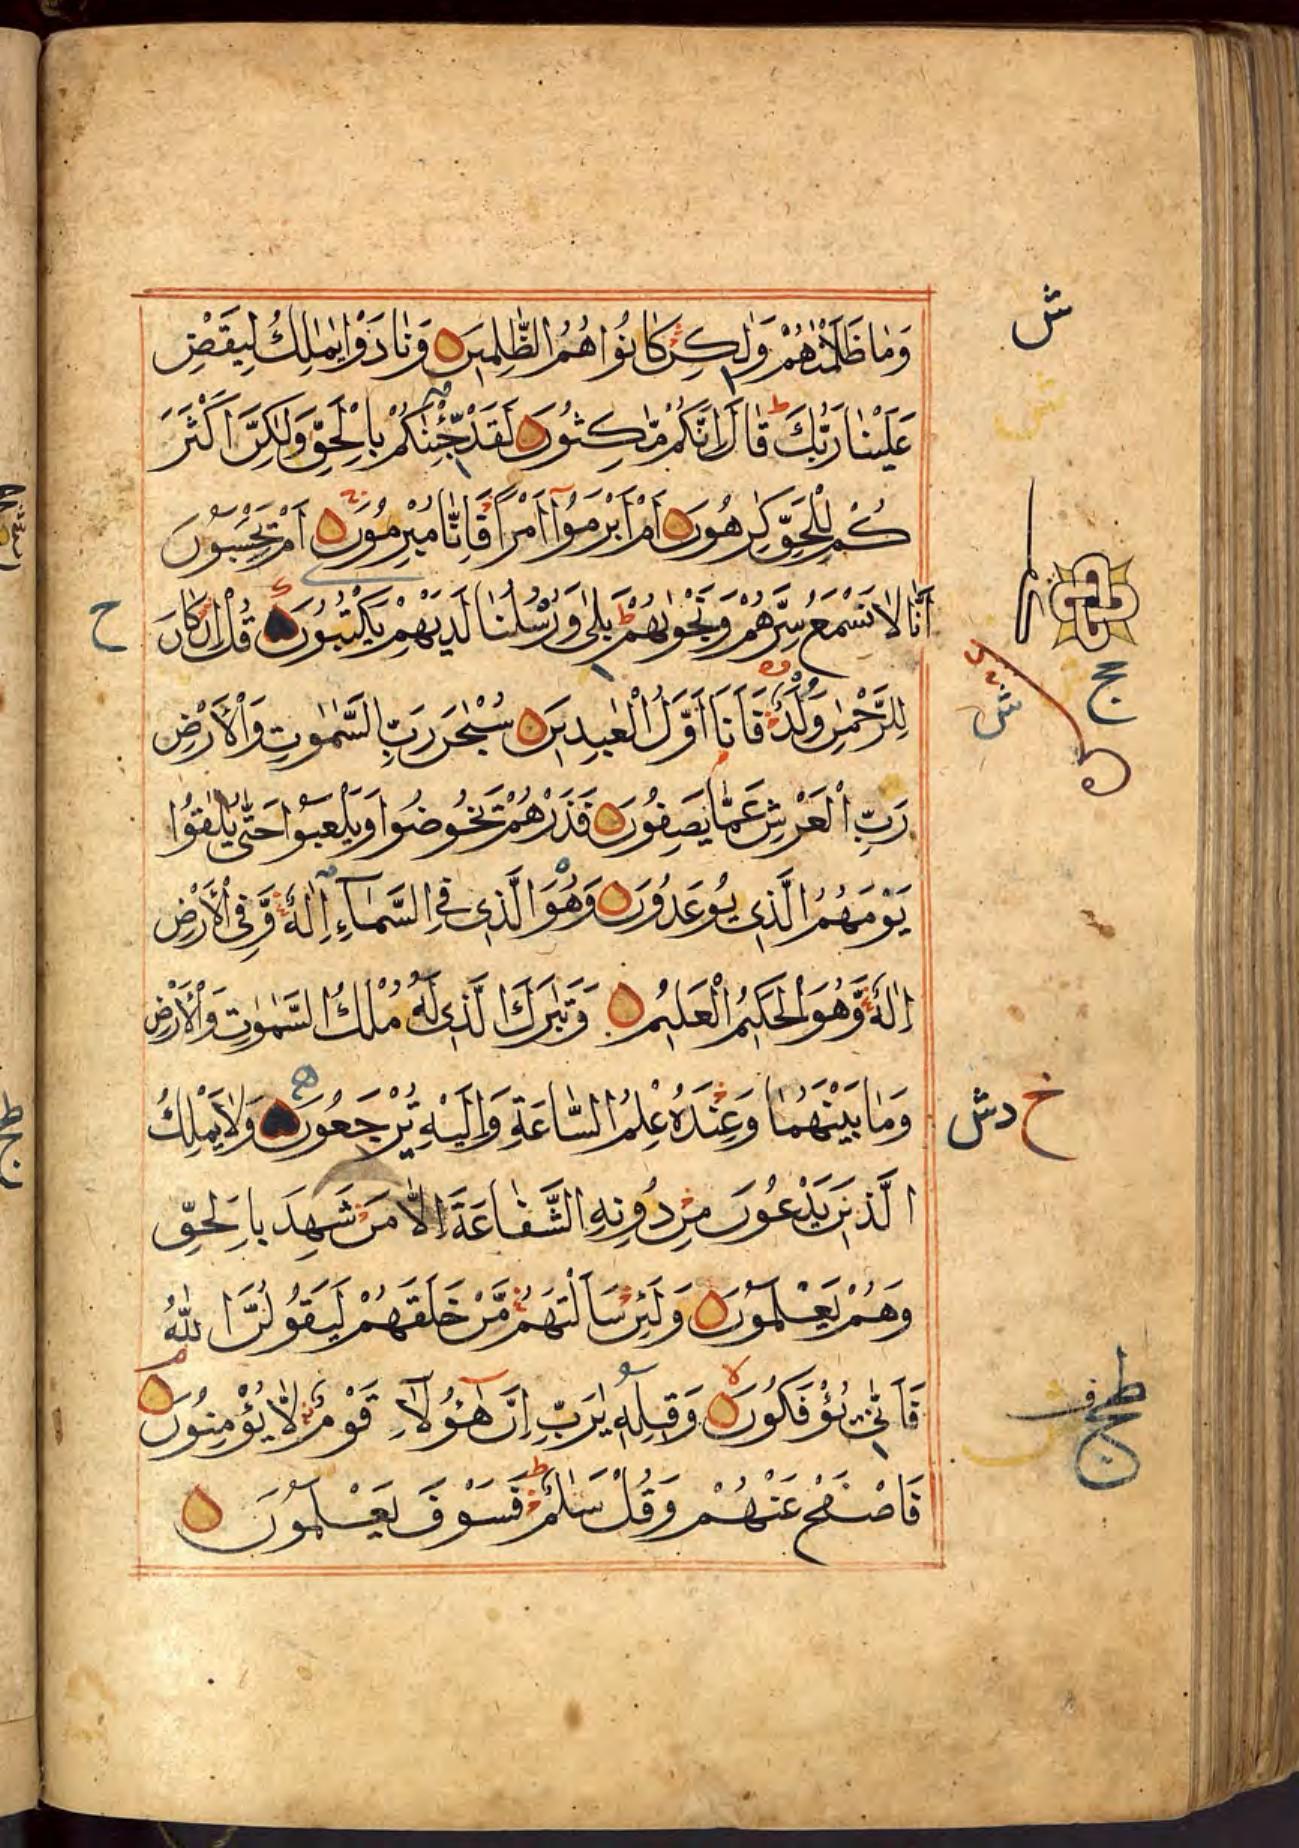 وَمَا ظَلَمْنٰهُمْ وَلٰكِنْ كَانُوْا هُمُ الظّٰلِمِيْنَ وَنَادَوْا يٰمٰلِكُ لِيَقْضِ
عَلَيْنَا رَبُّكَ ط قَالَ اِنَّكُمْ مّٰكِثُوْنَ لَقَدْ جِئْنٰكُمْ بِالْحَقِّ وَلٰكِنَّ اَكْثَرَ
كُمْ لِلْحَقِّ كٰرِهُوْنَ اَمْ اَبْرَمُوْٓا اَمْرًا فَاِنَّا مُبْرِمُوْنَ اَمْ يَحْسَبُوْنَ
اَنَّا لَا نَسْمَعُ سِرَّهُمْ وَنَجْوٰىهُمْ ط بَلٰى وَرُسُلُنَا لَدَيْهِمْ يَكْتُبُوْنَ قُلْ اِنْ كَانَ
لِلرَّحْمٰنِ وَلَدٌ فَاَنَا اَوَّلُ الْعٰبِدِيْنَ سُبْحٰنَ رَبِّ السَّمٰوٰتِ وَالْاَرْضِ
رَبِّ الْعَرْشِ عَمَّا يَصِفُوْنَ فَذَرْهُمْ يَخُوْضُوْا وَيَلْعَبُوْا حَتّٰى يُلٰقُوْا
يَوْمَهُمُ الَّذِيْ يُوْعَدُوْنَ وَهُوَ الَّذِيْ فِى السَّمَآءِ اِلٰهٌ وَّفِى الْاَرْضِ
اِلٰهٌ وَّهُوَ الْحَكِيْمُ الْعَلِيْمُ وَتَبٰرَكَ الَّذِيْ لَهٗ مُلْكُ السَّمٰوٰتِ وَالْاَرْضِ
وَمَا بَيْنَهُمَا وَعِنْدَهٗ عِلْمُ السَّاعَةِ وَاِلَيْهِ تُرْجَعُوْنَ وَلَا يَمْلِكُ
الَّذِيْنَ يَدْعُوْنَ مِنْ دُوْنِهِ الشَّفَاعَةَ اِلَّا مَنْ شَهِدَ بِالْحَقِّ
وَهُمْ يَعْلَمُوْنَ وَلَئِنْ سَاَلْتَهُمْ مَّنْ خَلَقَهُمْ لَيَقُوْلُنَّ اللّٰهُ
فَاَنّٰى يُؤْفَكُوْنَ وَقِيْلِهٖ يٰرَبِّ اِنَّ هٰٓؤُلَآءِ قَوْمٌ لَّا يُؤْمِنُوْنَ
فَاصْفَحْ عَنْهُمْ وَقُلْ سَلٰمٌ ط فَسَوْفَ يَعْلَمُوْنَ
ش
ش
ح
ج
ش
خ دش